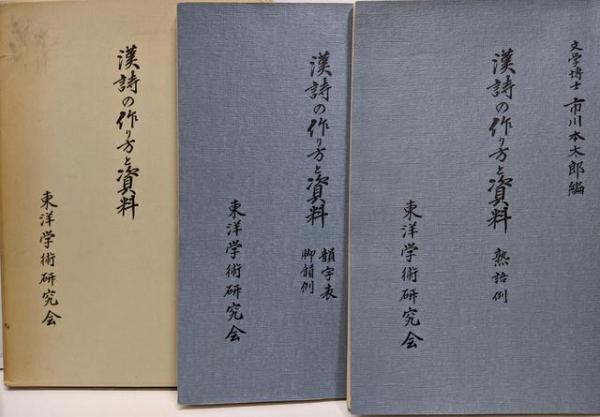 漢詩の作り方と資料
東洋学術研究会
漢詩の作り方と資料
韻字表
脚韻例
東洋学術研究会
文学博士 市川本太郎編
漢詩の作り方と資料
熟語例
東洋学術研究会